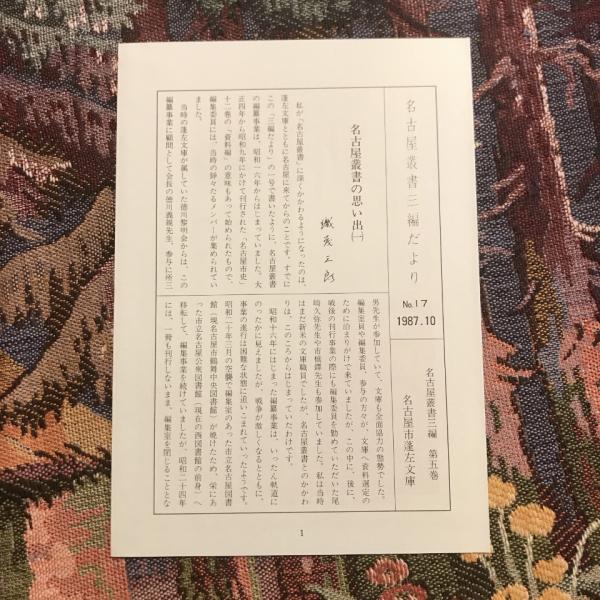 名古屋叢書三編だより
No.17
1987.10
名古屋叢書三編 第五巻
名古屋市蓬左文庫
名古屋叢書の思い出(一)
織茂三郎
私が「名古屋叢書」に深くかかわるようになったのは、
蓬左文庫とともに名古屋に来てからのことです。すでに
この「三編だより」の一号で書いたように、名古屋叢書
の編纂事業は、昭和一六年からはじまっていました。大
正四年から昭和九年にかけて刊行された「名古屋市史」
十二巻の「資料編」の意味もあって始められたもので、
編集委員には、当時の錚々たるメンバーが集められてい
ました。
当時の蓬左文庫が属していた徳川黎明会からは、この
編纂事業に顧問として会長の徳川義親先生、参与に所三
男先生が参加していて、文庫も全面協力の態勢でした。
編集室員や編集委員、参与の方々が、文庫へ資料選定の
ために泊まりがけで来ていましたが、この中に、後に、
戦後の刊行事業の際にも編集委員を勤めていただいた尾
崎久弥先生や市橋鐸先生も参加していました。私は当時
はまだ新米の文庫職員でしたが、名古屋叢書とのかかわ
りは、このころからはじまっていたわけです。
昭和十六年にはじまった編纂事業は、いったん軌道に
のったかに見えましたが、戦争が激しくなるとともに、
事業の遂行は困難な状態に追いこまれていったようです。
昭和二十年三月の空襲で編集室のあった市立名古屋図書
館(現名古屋市鶴舞中央図書館)が焼けたため、栄にあ
った市立名古屋公衆図書館(現在の西図書館の前身)へ
移転して、編集事業を続けていましたが、昭和二十四年
には、一冊も刊行しないまま、編集室を閉じることとな
1